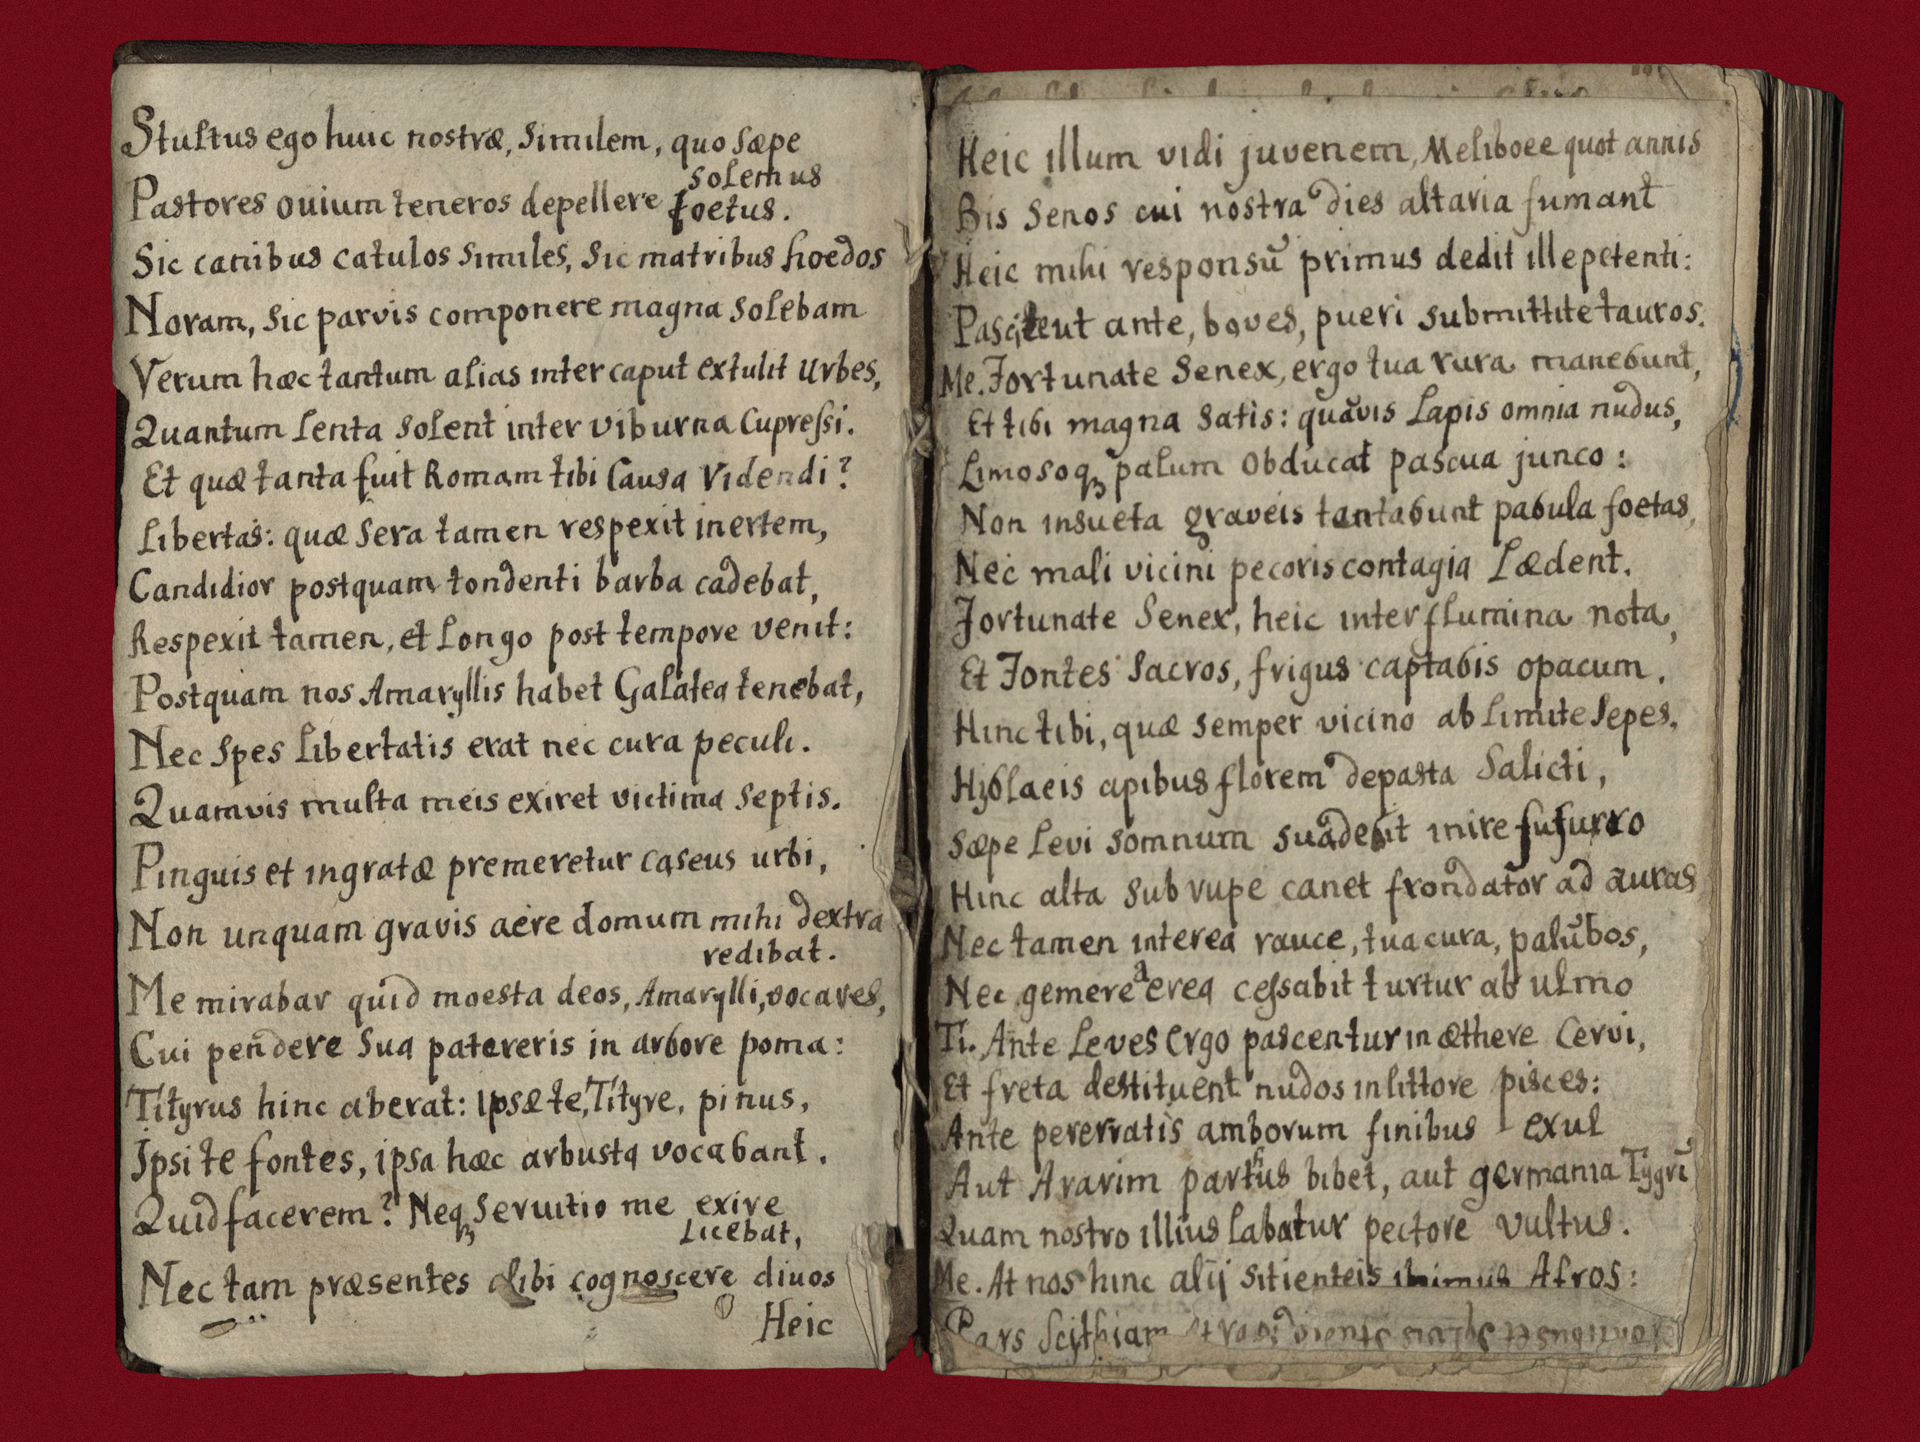 Stultus ego huic nostræ, Similem, quo Sæpe
Solemus
Pastores ouium teneros depellere foetus.
Sic canibus catulos Similes, Sic matribus hoedos
Noram, Sic parvis componere magna Solebam
Verum hæc tantum alias inter caput extulit Urbes,
Quantum Lenta Solent inter viburna Cupreſsi.
Et quæ tanta fuit Romam tibi Causa Videndi?
Libertas: quæ Sera tamen respexit inertem,
Candidior postquam tondenti barba cadebat,
Respexit tamen, et Longo post tempore venit:
Postquam nos Amaryllis habet Galatea tenebat,
Nec Spes Libertatis erat nec cura peculi.
Quamvis multa meis exiret victima Septis.
Pinguis et ingratæ premeretur caseus urbi,
Non unquam gravis aere domum mihi dextra
redibat.
Me mirabar quid moesta deos, Amarylli, vocares,
Cui pendere Sua patereris in arbore poma:
Tityrus hinc aberat: ipsæ te, Tityre, pinus,
Ipsi te fontes, ipsa hæc arbusta vocabant.
Quid facerem? Neqꝫ Seruitio me exire
Licebat,
Nec tam præsentes alibi cognoscere diuos
Heic
Heic illum vidi juvenem, Meliboee quot annis
Bis Senos cui nostra dies altaria fumant
Heic mihi responsū primus dedit ille petenti:
ante, boves, pueri submittite tauros.
Me. Fortunate Senex, ergo tua rura manebunt,
Et tibi magna Satis: quāvis Lapis omnia nudus,
Limosoqꝫ palum Obducat pascua junco:
Non insueta graveis tentabunt pabula foetas,
Nec mali vicini pecoris contagia Lædent.
Fortunate Senex, heic inter flumina nota,
Et Fontes Sacros, frigus captabis opacum.
Hinc tibi, quæ Semper vicino ab Limite Sepes,
Hyblaeis apibus florem depasta Salicti,
Sæpe Levi Somnum inire ſuſurro
Hinc alta Sub rupe canet frondator ad auras
Nec tamen interea rauce, tua cura, palūbos,
Nec gemere aerea ceſsabit turtur ab ulmo
Ti. Ante Leves Ergo pascentur in æthere Cervi,
Et freta destituent nudos in littore pisces:
Ante pererratis amborum finibus exul
Aut Ararim parthus bibet, aut germania Tygrī
Quam nostro illius Labatur pectore vultus.
Me. At nos hinc alij Sitienteis ibimus Afros:
Pars Scythiam